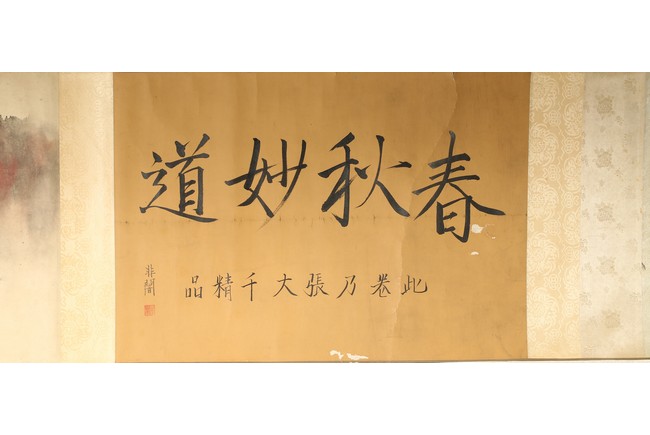 春秋妙道
此卷乃張大千精品
非闇